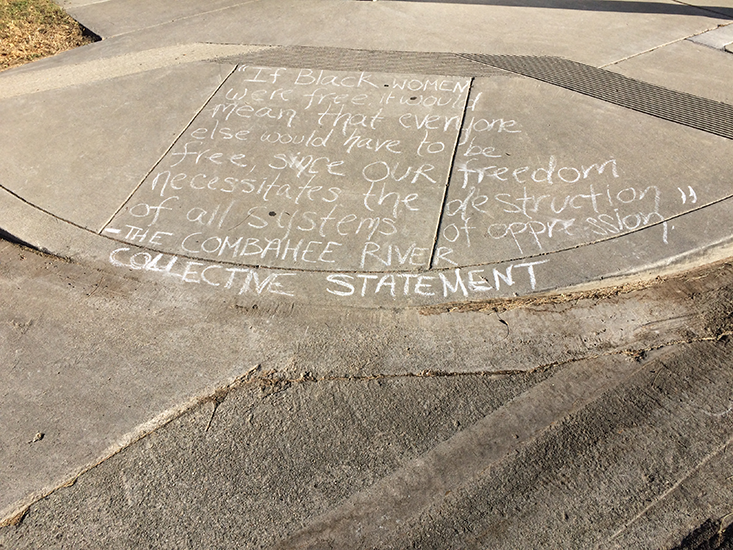 "If Black WOMEN
were free it would
mean that everyone
else would have to be
free, since OUR freedom
necessitates the destruction
of all systems of oppression."
-THE COMBAHEE RIVER
COLLECTIVE STATEMENT